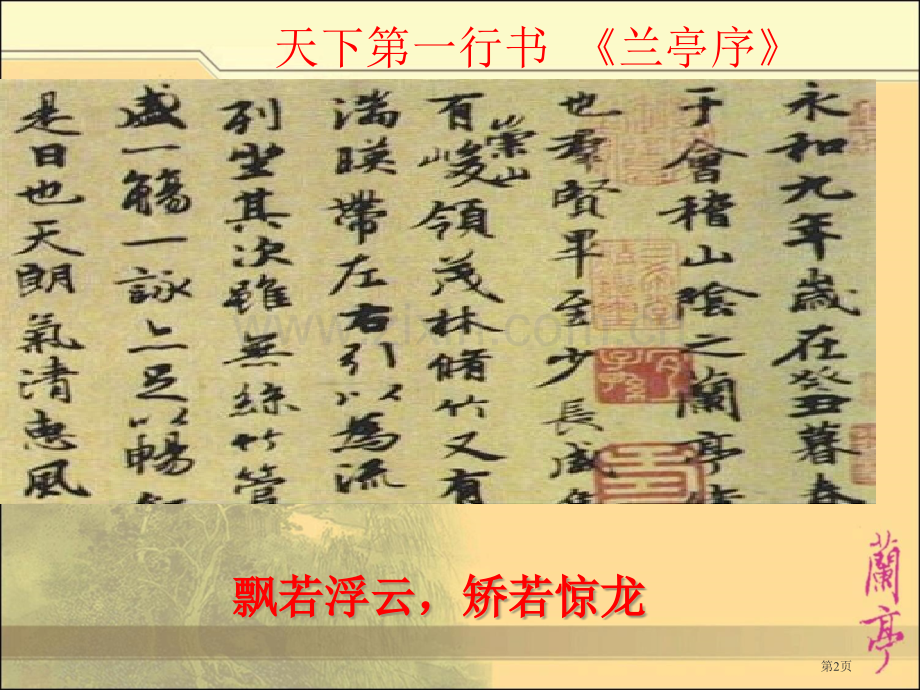 天下第一行书 《兰亭序》
永和九年歲在癸丑暮春
于會稽山陰之蘭亭脩
也羣賢畢至少長咸
有崇山峻領茂林脩竹又有
湍暎帶左右引以為流
列坐其次雖無絲竹管
盛一觴一詠亦足以暢
是日也天朗氣清惠風
www.zixin.com.cn
飘若浮云，矫若惊龙
蘭亭
第2页